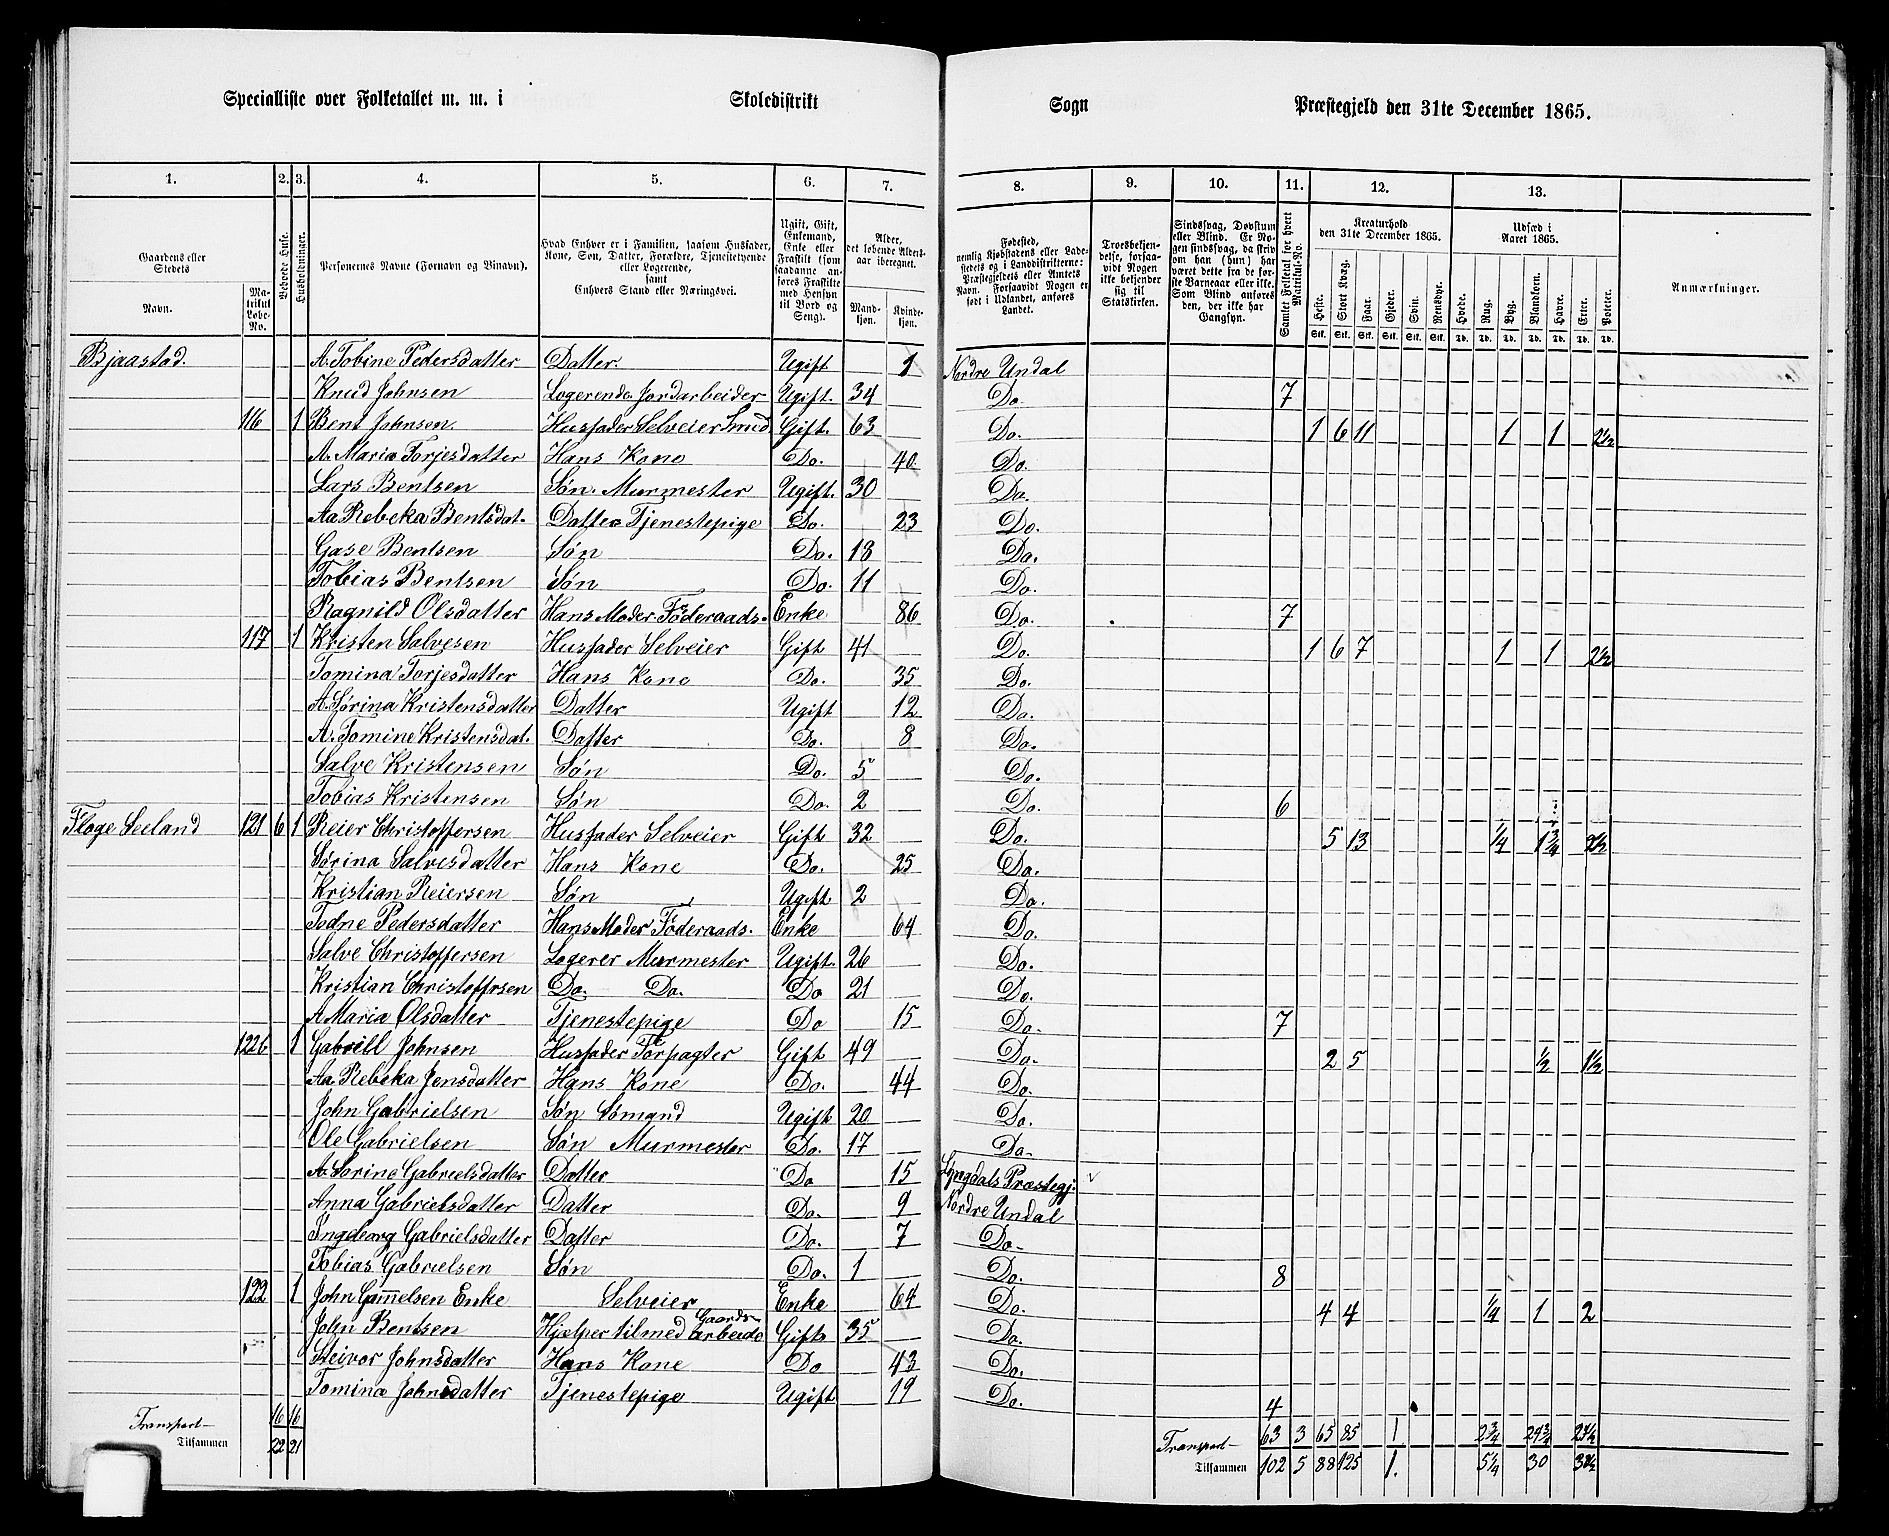 Specialliste over Folketallet m. m. i Skoledistrikt Sogn Præstegjeld den 31te December 1865.
1. 2. 3. 4. 5. 6. 7. 8. 9. 10. 11. 12. 13.
Gaardens eller Stedets
Navn.
Matrikul Løbe-No.
Beboede Huse.
Husholdninger.
Personernes Navne (Fornavn og Vinavn).
Hvad Enhver er i Familien, saasom Husfader, Kone, Søn, Datter, Forældre, Tjenestetyende eller Logerende, samt Enhvers Stand eller Næringsvei.
Ugift, Gift, Enkemand, Enke eller Fraskilt (som saadanne anføres Fraskilte med Hensyn til Bord og Seng).
Alder, det løbende Aldersaar iberegnet.
Mandkjøn. Kvindekjøn.
Fødested, nemlig Kjøbstadens eller Ladestedets og i Landdistrikterne: Præstegjeldets eller Amtets Navn. Forsaavidt Nogen er født i Udlandet, anføres Landet.
Troesbekjendelse, forsaavidt Nogen ikke bekjender sig til Statskirken.
Sindssvag, Døvstum eller Blind. Er Nogen sindssvag, da skriv om han (hun) har været dette fra de første Barneaar eller ikke. Som Blind anføres den, der ikke har Gangsyn.
Samlet Folketal for hvert Matrikul-No.
Kreaturhold den 31te December 1865.
Heste. Stort Kvæg. Faar. Gjeder. Svin. Rensdyr.
Stk. Stk. Stk. Stk. Stk. Stk.
Udsæd i Aaret 1865.
Hvede. Rug. Byg. Blandkorn. Havre. Erter. Poteter.
Td. Td. Td. Td. Td. Td. Td.
Anmærkninger.
Bjaastad. A. Tobine Pedersdatter Datter. Ugift 1 Nordre Undal
Knud Johnsen Logerende Jordarbeider Ugift. 34 Do. 7
116 1 Bent Johnsen. Husfader Selveier Smed Gift. 63 Do. 1 6 11 1 1 2½
A. Maria Torjesdatter Hans Kone Do. 40 Do.
Lars Bentsen Søn. Murmester Ugift. 30 Do.
Aa Rebeka Bentsdat. Datter Tjenestepige Do. 23 Do.
Gase Bentsen Søn Do. 18 Do.
Tobias Bentsen Søn Do. 11 Do.
Ragnild Olsdatter Hans Moder Föderaads. Enke 86 Do. 7
117 1 Kristen Salvesen Husfader Selveier Gift 41 Do. 1 6 7 1 1 2½
Tomina Torjesdatter Hans Kone Do. 35 Do.
A. Sørina Kristensdatter Datter Ugift 12 Do.
A. Tomine Kristensdat. Datter Do. 8 Do.
Salve Kristensen Søn Do. 5 Do.
Tobias Kristensen Søn Do. 2 Do. 6
Floge Seeland 121 6 1 Reier Christoffersen Husfader Selveier Gift 32 Do. 5 13 ¼ 1¾ 2½
Sørina Salvesdatter Hans Kone Do. 25 Do.
Kristian Reiersen Søn Ugift 2 Do.
Todne Pedersdatter Hans Moder Föderaads. Enke 64 Do.
Salve Christoffersen Logerer Murmester Ugift. 26 Do.
Kristian Christoffrsen Do. Do. Do 21 Do.
A Maria Olsdatter Tjenestepige Do 15 Do. 7
122b 1 Gabriell Johnsen Husfader Forpagter Gift 49 Do. 2 5 ½ 1½
Aa Rebeka Jensdatter Hans Kone Do. 44 Do.
John Gabrielsen Søn Sømand Ugift 20 Do.
Ole Gabrielsen Søn Murmester Do. 17 Do.
A. Sorine Gabrielsdatter Datter Do 15 Lyngdals Præstegj.
Anna Gabrielsdatter Datter Do. 9 Nordre Undal
Ingeborg Gabrielsdatter Datter Do. 7 Do.
Tobias Gabrielsen Søn Do. 1 Do. 8
122 1 John Gamelsen Enke Selveier Enke 64 Do. 4 4 ¼ 1 2
John Bentsen Hjelper til med Gaards arbeide Gift 35 Do.
Steivor Johnsdatter Hans Kone Do 43 Do.
Tomina Johnsdatter Tjenestepige Ugift 19 Do. 4
Transport 16 16 Transport 63 3 65 85 1 2¾ 24¾ 27½
Tilsammen 22 21 Tilsammen 102 5 88 125 1. 5¼ 30